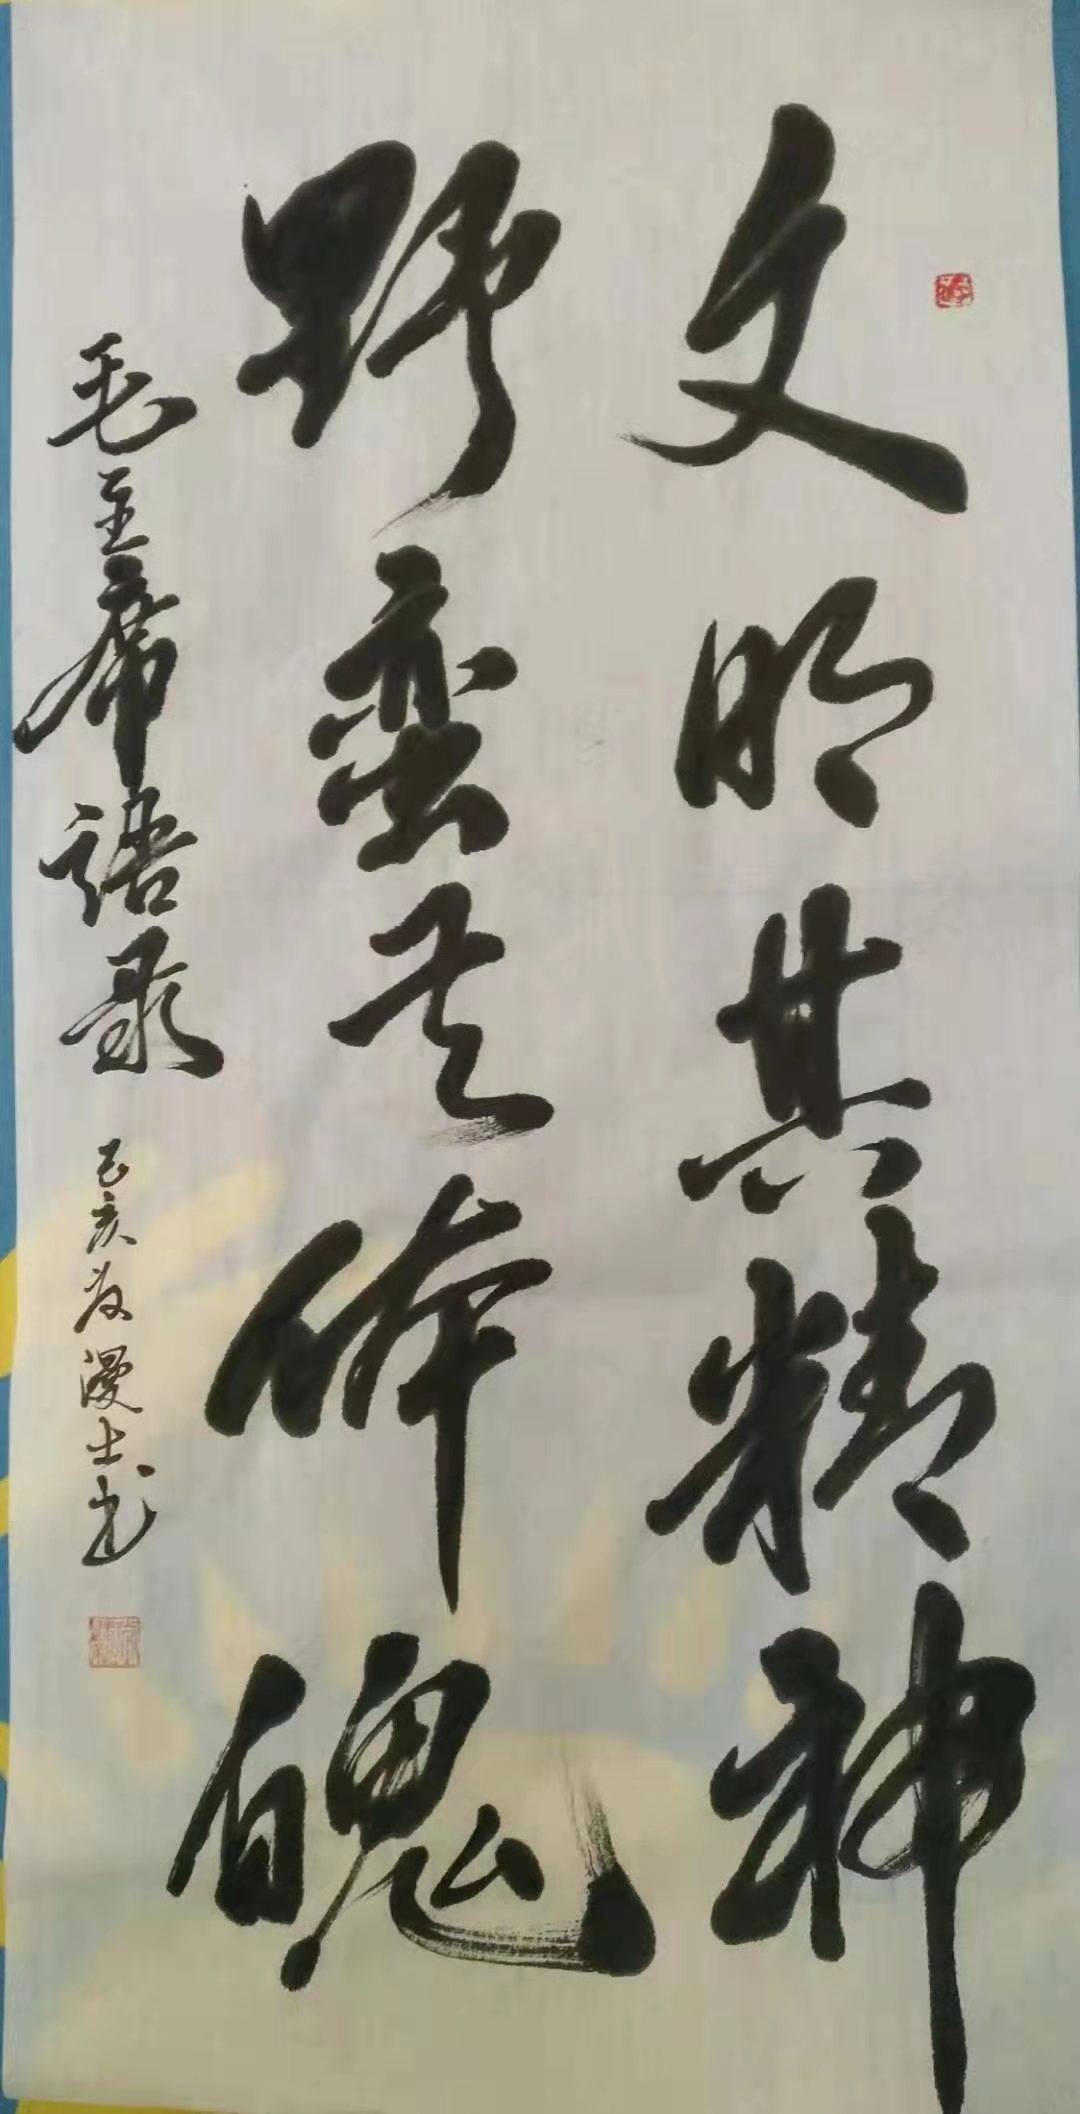 文明其精神
野蛮其体魄
毛主席语录
己亥 漫士书